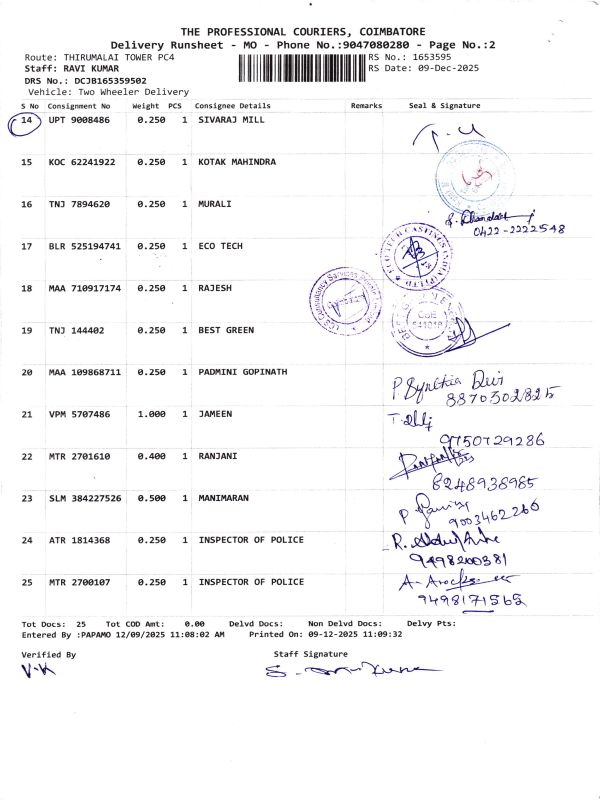 THE PROFESSIONAL COURIERS, COIMBATORE
Delivery Runsheet - MO - Phone No.:9047080280 - Page No.:2
Route: THIRUMALAI TOWER PC4
RS No.: 1653595
Staff: RAVI KUMAR
RS Date: 09-Dec-2025
DRS No.: DCJB165359502
Vehicle: Two Wheeler Delivery
S No Consignment No Weight PCS Consignee Details Remarks Seal & Signature
14 UPT 9008486 0.250 1 SIVARAJ MILL
15 KOC 62241922 0.250 1 KOTAK MAHINDRA
16 TNJ 7894620 0.250 1 MURALI
0422-2222548
17 BLR 525194741 0.250 1 ECO TECH
ECO TECH CASTINGS INDIA (P) LTD
18 MAA 710917174 0.250 1 RAJESH
Consultancy Services Private Limited
19 TNJ 144402 0.250 1 BEST GREEN
CBE
641018
20 MAA 109868711 0.250 1 PADMINI GOPINATH
P Synthia Devi
8870302825
21 VPM 5707486 1.000 1 JAMEEN
9750729286
22 MTR 2701610 0.400 1 RANJANI
8248938985
23 SLM 384227526 0.500 1 MANIMARAN
9003462266
24 ATR 1814368 0.250 1 INSPECTOR OF POLICE
9498200381
25 MTR 2700107 0.250 1 INSPECTOR OF POLICE
9498171565
Tot Docs: 25 Tot COD Amt: 0.00 Delvd Docs: Non Delvd Docs: Delvy Pts:
Entered By :PAPAMO 12/09/2025 11:08:02 AM Printed On: 09-12-2025 11:09:32
Verified By Staff Signature
V-K